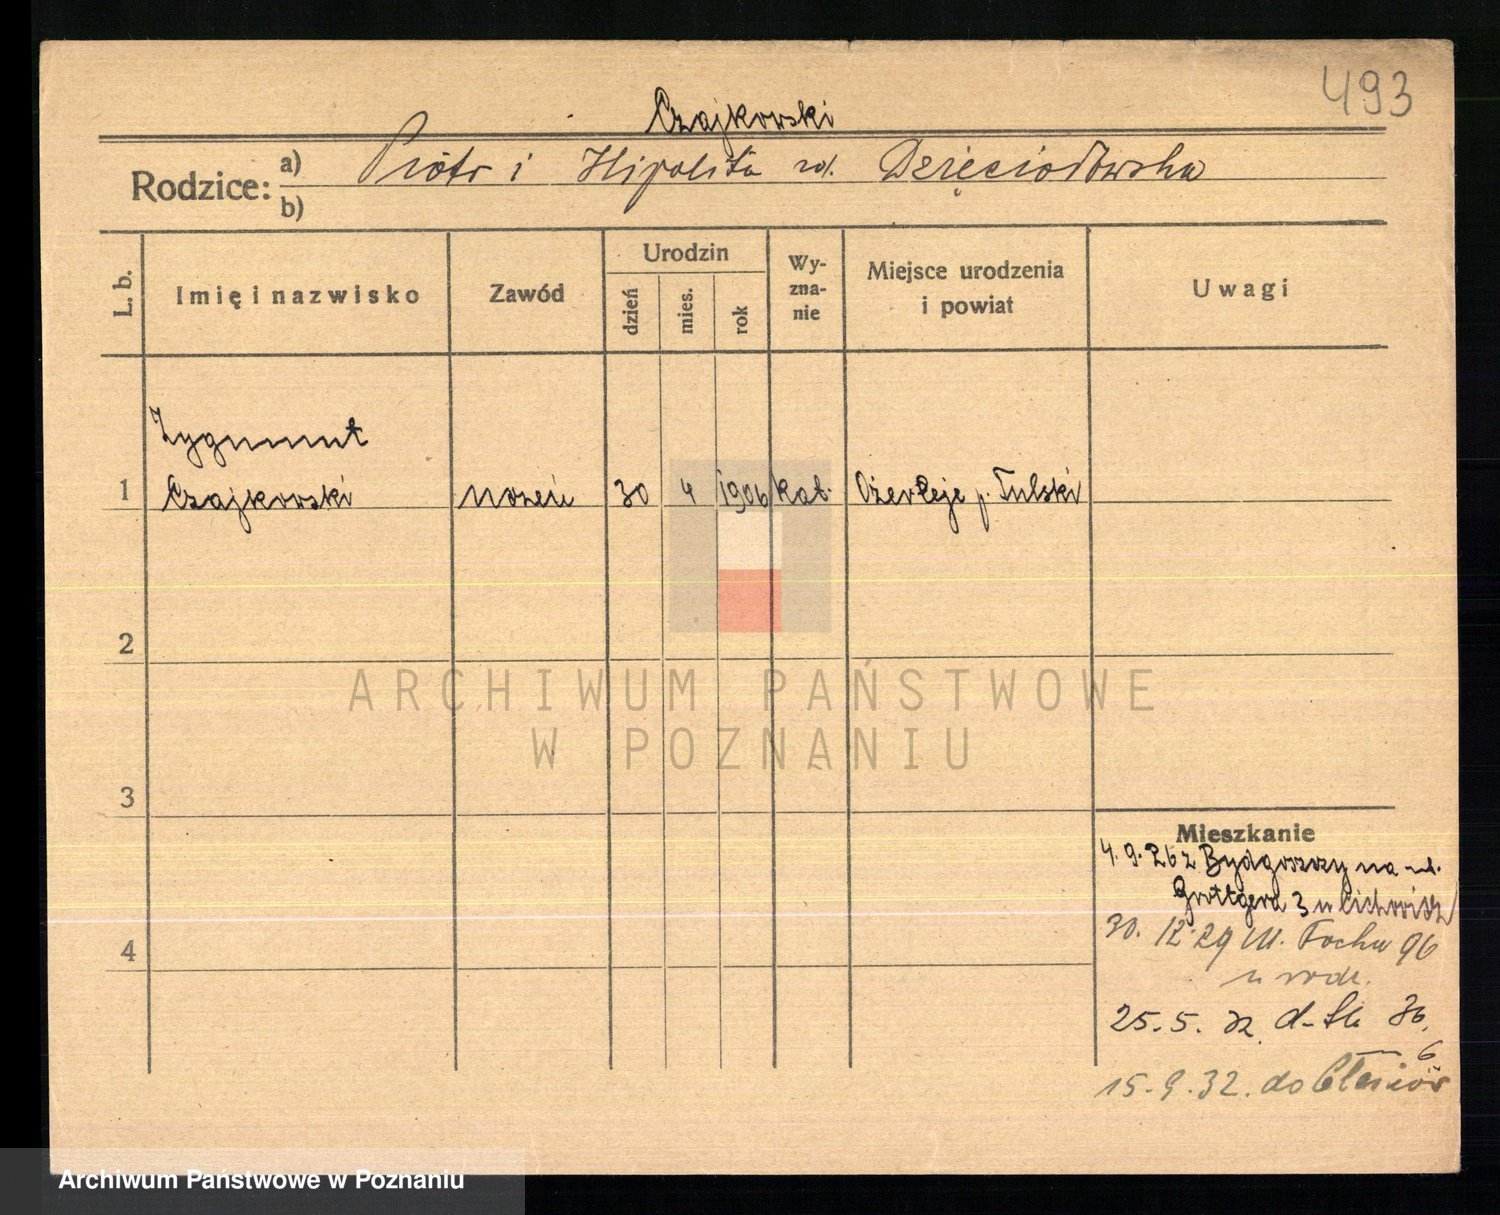 493
Czajkowski
Rodzice: a) Piotr i Hipolita rd. Dzięciołowska
b)
L. b.
Imię i nazwisko
Zawód
Urodzin
dzień
mies.
rok
Wy-
zna-
nie
Miejsce urodzenia
i powiat
Uwagi
Zygmunt
1 Czajkowski uczeń 30 4 1906 kat. Ożerłeje p. Tulski
2
ARCHIWUM PAŃSTWOWE
W POZNANIU
3
4
Mieszkanie
4.9.26 z Bydgoszczy na ul.
Grottgera 3 u
30. 12. 29 Ul. Focha 96
u rodz.
25. 5. 32 36,
6
15. 9. 32. do
Archiwum Państwowe w Poznaniu